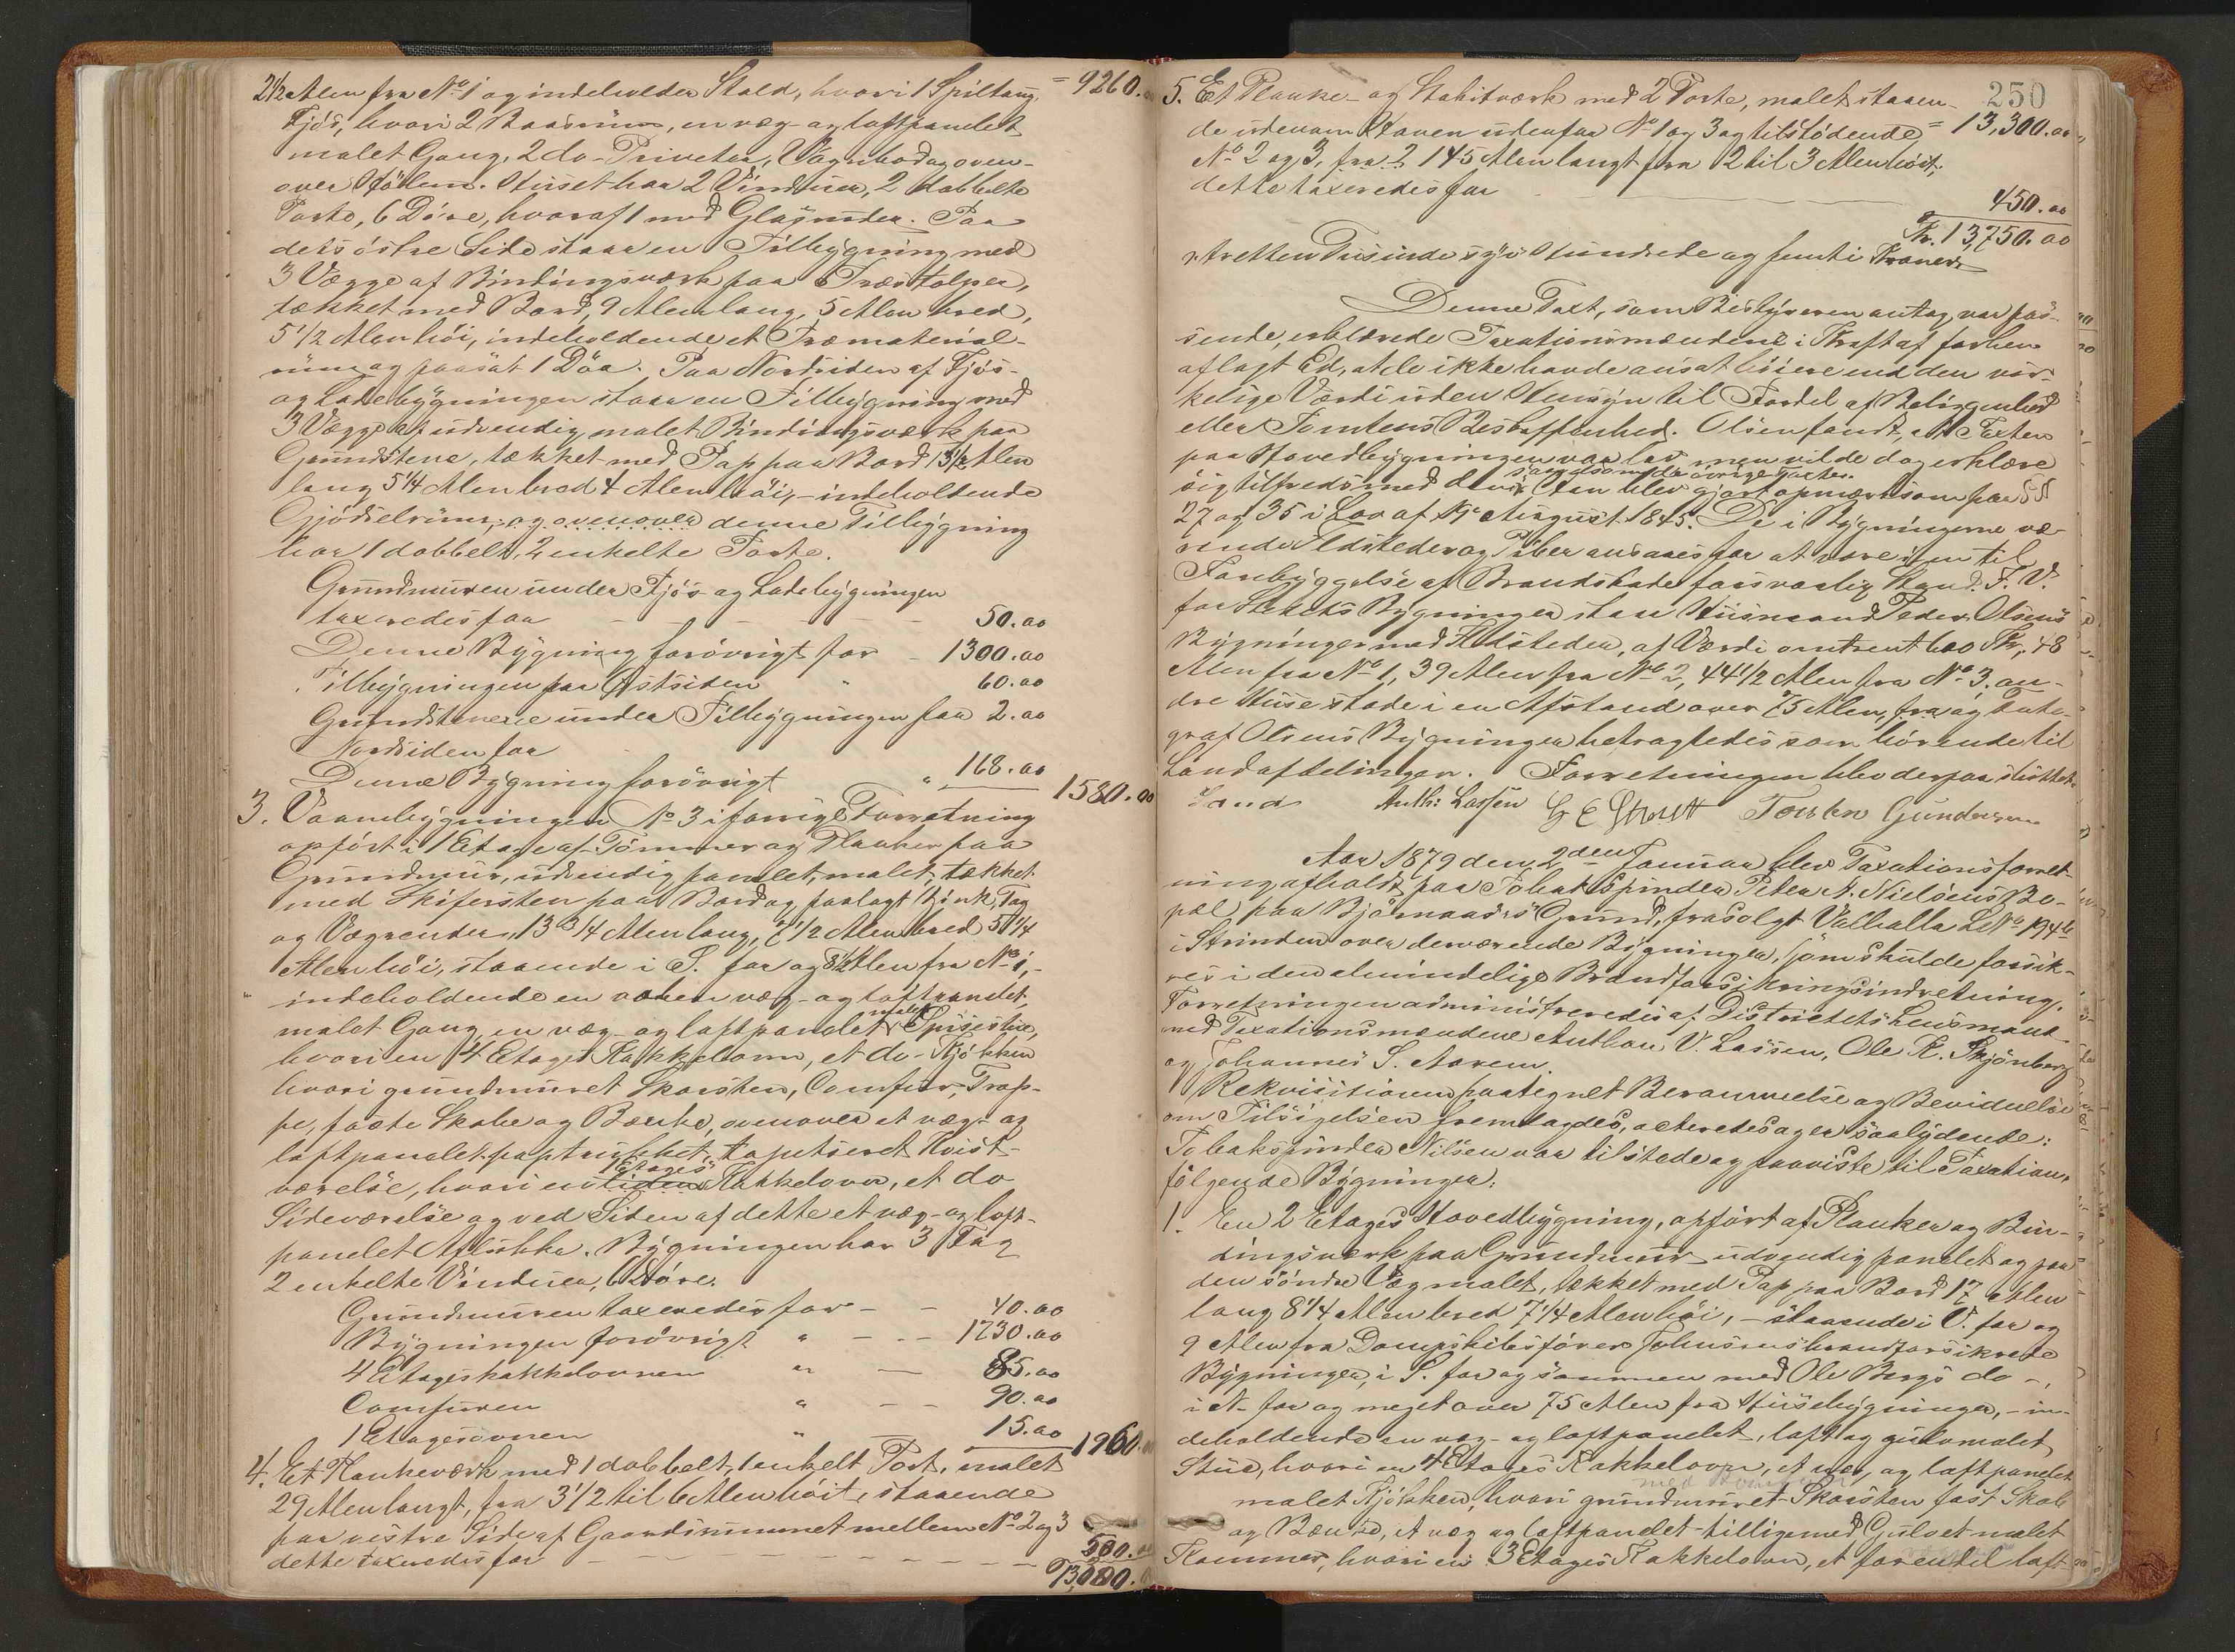 2½ Alen fra No 1 og indeholder Stald, hvori 1 Spiltoug, = 9260.
Fjøs, hvori 2 Baasrum, en væg- og loftpanelet
malet Gang, 2 do - Priveter, Vognbod og oven-
over Høilem. Huset har 2 Vinduer, 2 dobbelte
Porte, 6 Döre, hvoraf 1 med Glasruder. Paa
dets östre Side staar en Tilbygning med
3 Vægge af Bindingsværk paa Træstolper,
tækket med Bord, 9 Alen lang, 5 Alen bred,
5 1/2 Alen höi, indeholdende et Træmaterial-
rum og paasat 1 Dör. Paa Nordsiden af Fjös-
og Ladebygningen staar en Tilbygning med
3 Vægge af udvendig malet Bindingsværk paa
Grundstene, tækket med Pap paa Bord 13 1/2 Alen
lang 5 1/4 Alen bred 4 Alen höi, - indeholdende
Gjödselrum, og ovenover denne Tilbygning
har 1 dobbelt, 2 enkelte Porte.
Grundmuren under Fjös- og Ladebygningen
taxeredes for - - - 50.00
Denne Bygning forövrigt for - 1300.00
Tilbygningen paa Östsiden " 60.00
Grundstenene under Tilbygningen paa 2.00
Nordsiden for
Denne Bygning forövrigt " 168.00 1580.00
3. Vaanebygningen No 3 i forrige Forretning
opfört i 1 Etage af Tömmer og Planker paa
Grundmur, udvendig panelet, malet, tækket
med Skifersten paa Bord og paalagt Zink, Tag
og Vægrender, 13 3/4 Alen lang, 7 1/2 Alen bred 5 1/4
Alen höi, staaende i S. for og 8½ Alen fra No 1, -
indeholdende en væg- og loftpanelet
malet Gang, en væg- og loftpanelet malet Spisestue,
hvori en 4 Etages Kakkelovn, et do - Kjökken
hvori grundmuret Skorsten, Comfur, Trap-
pe, faste Skabe og Bænke, ovenover et væg- og
loftpanelet paptrukket, tapetseret Kvist-
værelse, hvori en liden 1 Etages Kakkelovn, et do
Sideværelse og ved Siden af dette et væg- og loft-
panelet Aflukke. Bygningen har 3 Fag
2 enkelte Vinduer, 6 Döre.
Grundmuren taxeredes for - - 40.00
Bygningen forövrigt " - - - 1730.00
4 Etageskakkelovnen " - 85.00
Comfuren " - - 90.00
1 Etagesovnen " - 15.00 1960.00
4. Et Plankeværk med 1 dobbelt, 1 enkelt Port, malet
29 Alen langt, fra 3 1/2 til 6 Alen höit, staaende
paa vestre Side af Gaardsrummet mellem No 2 og 3
dette taxeredes for - - - - 500.00
13,080.
250
5. Et Planke- og Stakitværk med 2 Porte, malet staaen-
de udenom Haven udenfor No 1 og 3 og tilstödende = 13,300.00
No 2 og 3, fra 2 145 Alen langt fra 2 til 3 Alen höit;
dette taxeredes for - - 450.00
Kr. 13,750.00
Tretten Tusinde syv Hundrede og femti Kroner
Denne Taxt, som Bestyreren antog var pas-
sende, erklærede Taxationsmændene i Kraft af forhen
aflagt Ed, at de ikke havde ansat höiere end den vir-
kelige Værdi uden Hensyn til Fordel af Beliggenhed
eller Tomtens Beskaffenhed. Olsen fandt, at Taxten
paa Hovedbygningen var lav, men vilde dog erklære
sig tilfreds med den saavelsom de övrige Taxter. Han blev gjort opmærksom paa §§
27 og 35 i Lov af 19 August 1845. De i Bygningerne væ-
rende Ildsteder og Piber ansaaes for at være i en til
Forebyggelse af Brandskade forsvarlig Stand. I V.
for Stedets Bygninger staar Husmand Peder Olsens
Bygninger med Ildsteder, af Værdi omtrent 600 Kr, 48
Alen fra No 1, 39 Alen fra No 2, 44 1/2 Alen fra No 3. an-
dre Huse stode i en Afstand over 75 Alen, fra og Foto-
graf Olsens Bygninger betragtedes som hörende til
Landafdelingen. Forretningen blev derpaa sluttet.
Land Anth: Lassen Torsten Gundersen
Aar 1879 den 2den Januar blev Taxationsforret-
ning afholdt paa Tobakspinder Peter N. Nielsens Bo-
pæl paa Bjömaas's Grund, frasolgt Valhalla LNo 194 b
i Strinden over derværende Bygninger, som skulde forsik-
res i den almindelige Brandforsikringsindretning.
Forretningen administreredes af Districtets Lensmand
med Taxationsmændene Anthon V. Lassen, Ole K. Skjönberg
og Johannes S. Aaren.
Rekvisitionen paategnet Berammelse og Bevidnelse
om Tilsigelsen fremlagdes, acteredes og er saalydende:
Tobakspinder Nilsen var tilstede og paaviste til Taxation
fölgende Bygninger:
1. En 2 Etages Hovedbygning, opfört af Planker og Bin-
dingsværk paa Grundmur udvendig panelet og paa
den söndre Væg malet, tækket med Pap paa Bord 17 Alen
lang 8 1/4 Alen bred 7 1/4 Alen höi, - staaende i V. for og
9 Alen fra Dampskibsförer Johnsens brandforsikrede
Bygninger, i S. for og sammen med Ole Bergs do -,
i N. for og meget over 75 Alen fra Husebygninger, - in-
deholdende en væg- og loftpanelet, loft og gulvmalet
Stue, hvori en 4 Etages Kakkelovn, et væg og loftpanelet
malet Kjökken, hvori grundmuret Skorsten fast Skab
og Bænke, et væg og loftpanelet tilligemed Gulvet malet
Kammer, hvori en 3 Etages Kakkelovn, et forentil loft-